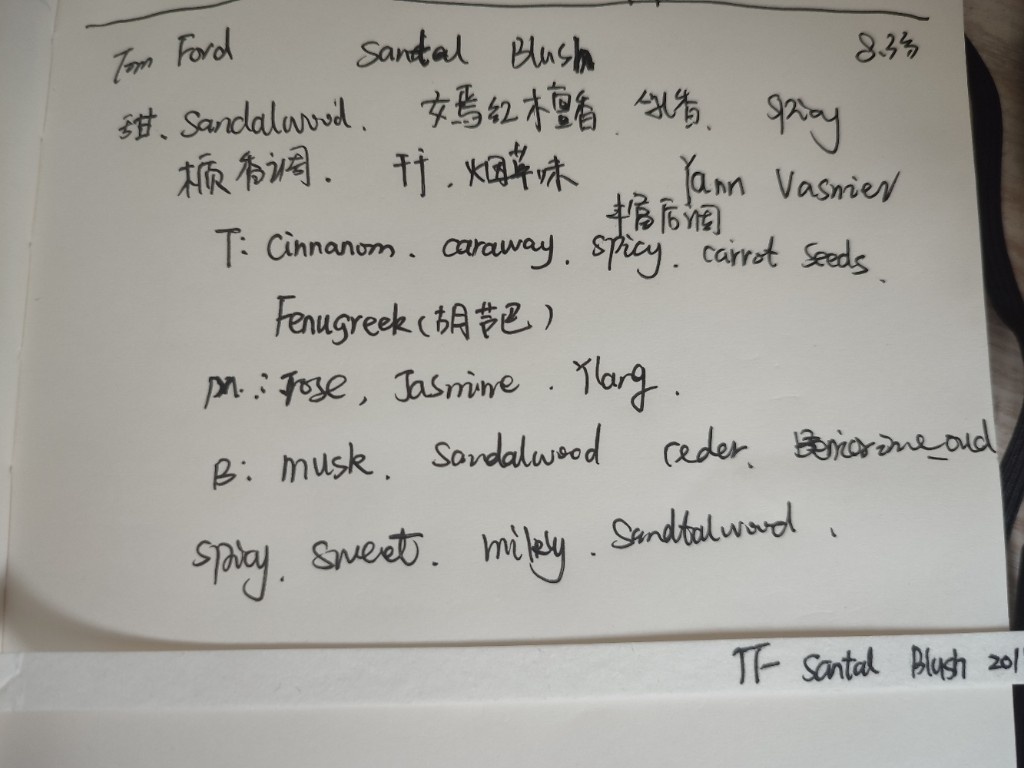 Tom Ford Santal Blush 8.3分
甜、Sandalwood. 女焉红木檀香. 乳香. spicy
木质香调. 干, 烟草味 Yann Vasnier
后调
T: Cinnanom. caraway. spicy. carrot seeds.
Fenugreek(胡芦巴)
m.: rose, Jasmine. Ylang.
B: musk. Sandalwood ceder. oud
spicy. sweet. milky. Sandtalwood.
TF- Santal Blush 201